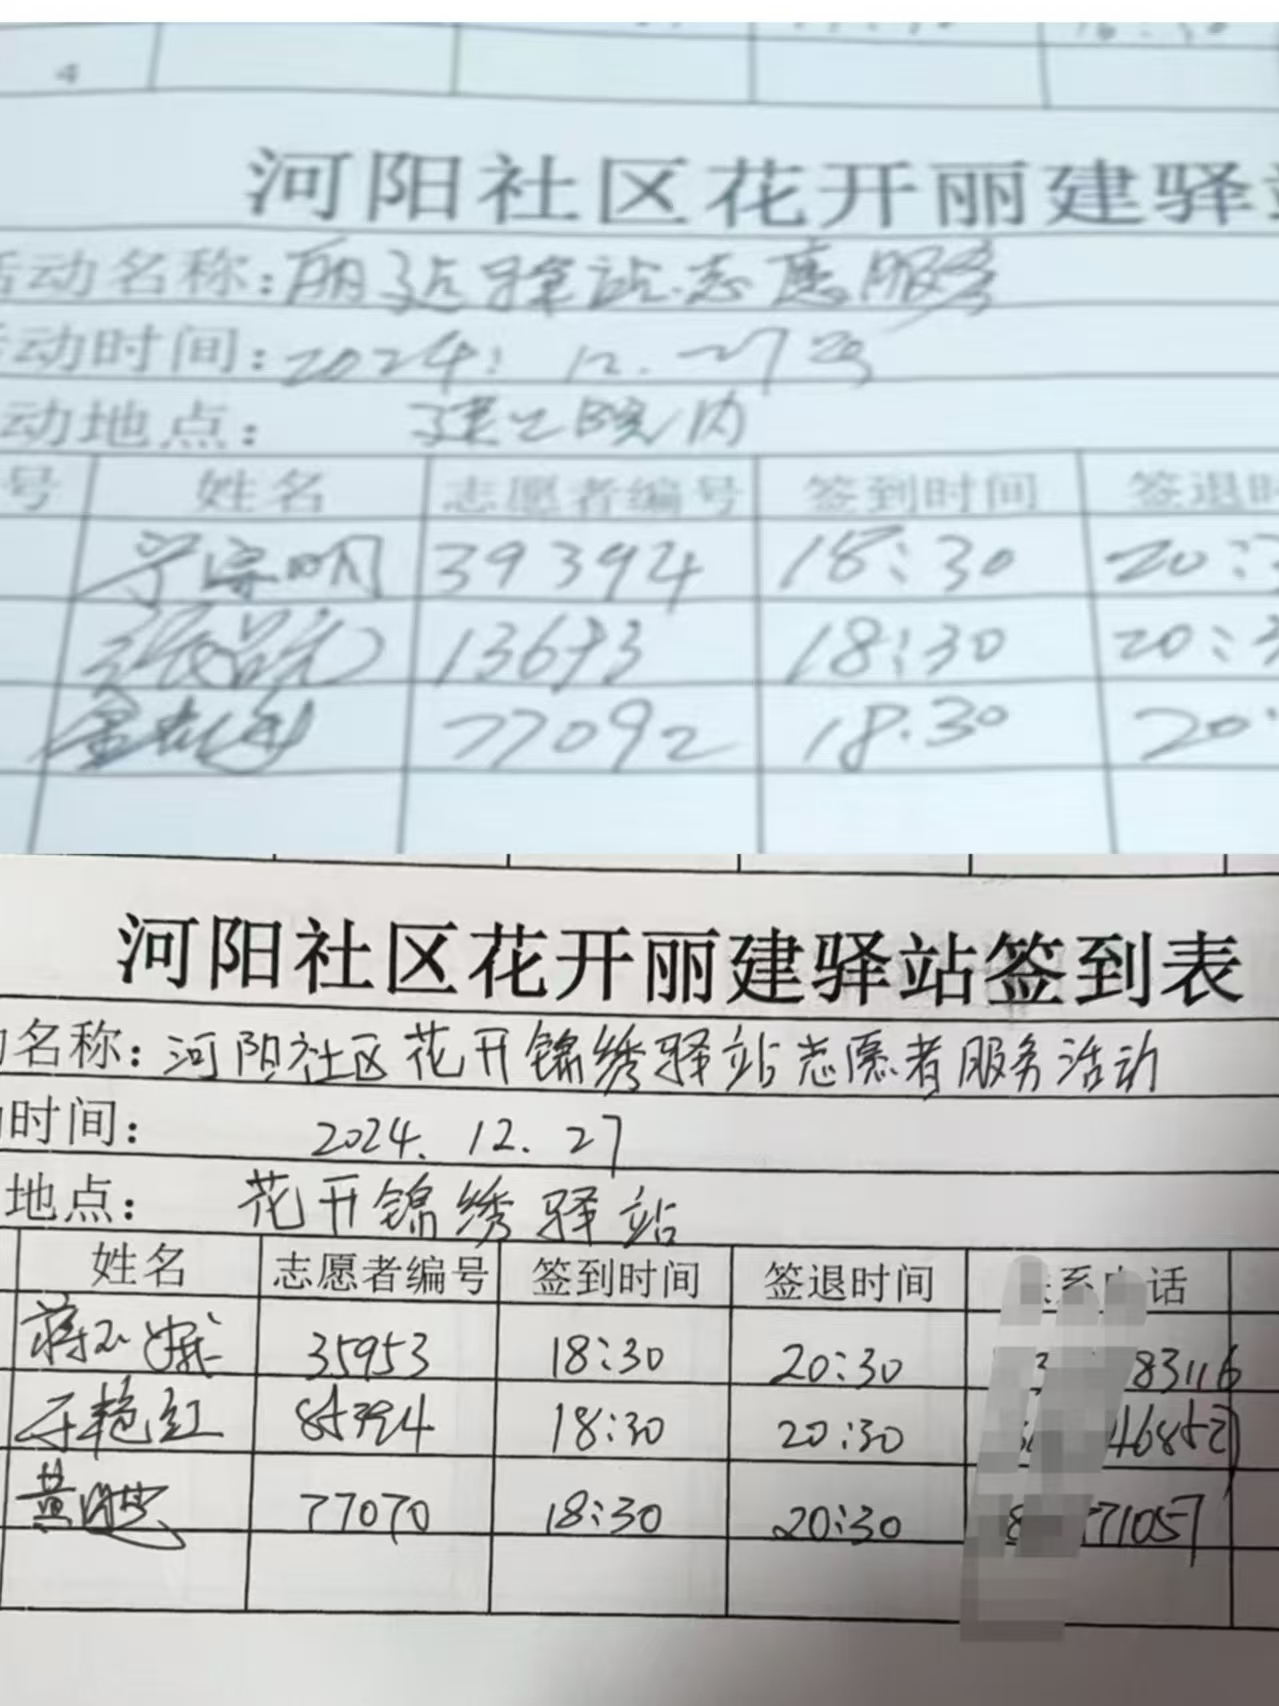 4
河阳社区花开丽建驿
活动名称：丽建驿站志愿服务
活动时间：2024.12.27号
动地点：建工院内
号 姓名 志愿者编号 签到时间 签退时
宁宗明 39394 18:30 20:3
13693 18:30 20:3
77092 18.30 20
河阳社区花开丽建驿站签到表
名称：河阳社区花开锦绣驿站志愿者服务活动
时间： 2024.12.27
地点： 花开锦绣驿站
姓名 志愿者编号 签到时间 签退时间 系电话
35953 18:30 20:30 83116
艳红 85394 18:30 20:30 46852
黄 77070 18:30 20:30 71057